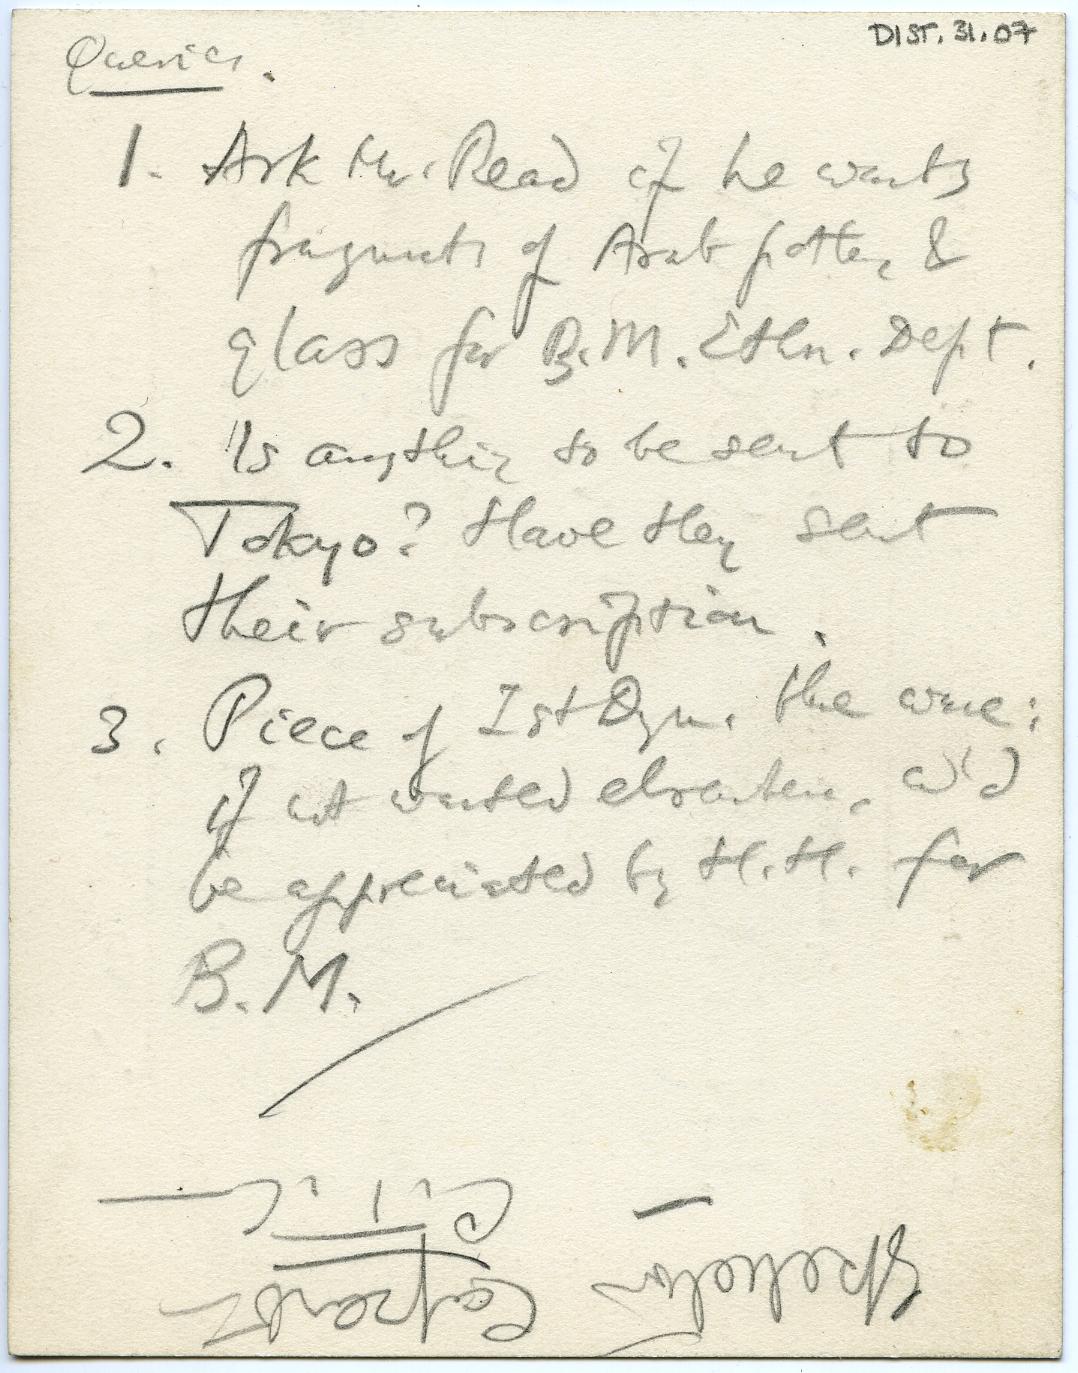 DIST. 31.07
Queries.
1. Ask Mr. Read if he wants
fragments of Arab pottery &
glass for B.M. Ethn. Dept.
2. Is anything to be sent to
Tokyo? Have they sent
their subscription.
3. Piece of Ist Dyn. blue ware:
if not wanted elsewhere, w'd
be appreciated by H.H. for
B.M.